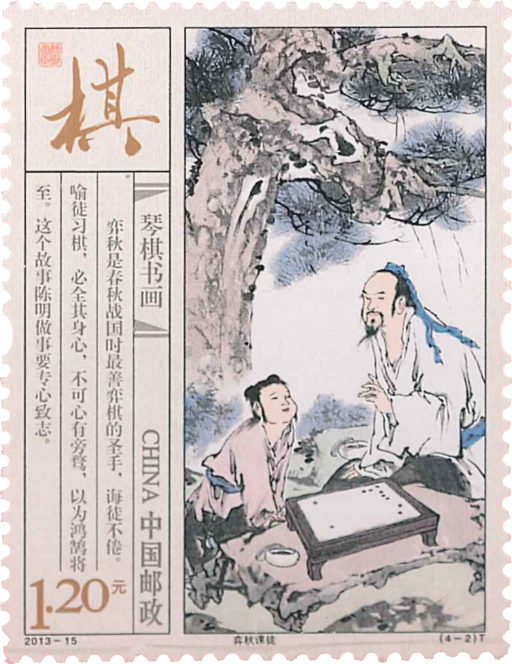 棋
琴棋书画
CHINA 中国邮政
弈秋是春秋战国时最善弈棋的圣手，诲徒不倦。
喻徒习棋，必全其身心，不可心有旁骛，以为鸿鹄将
至。这个故事陈明做事要专心致志。
1.20元
2013-15
弈秋课徒
(4-2)T